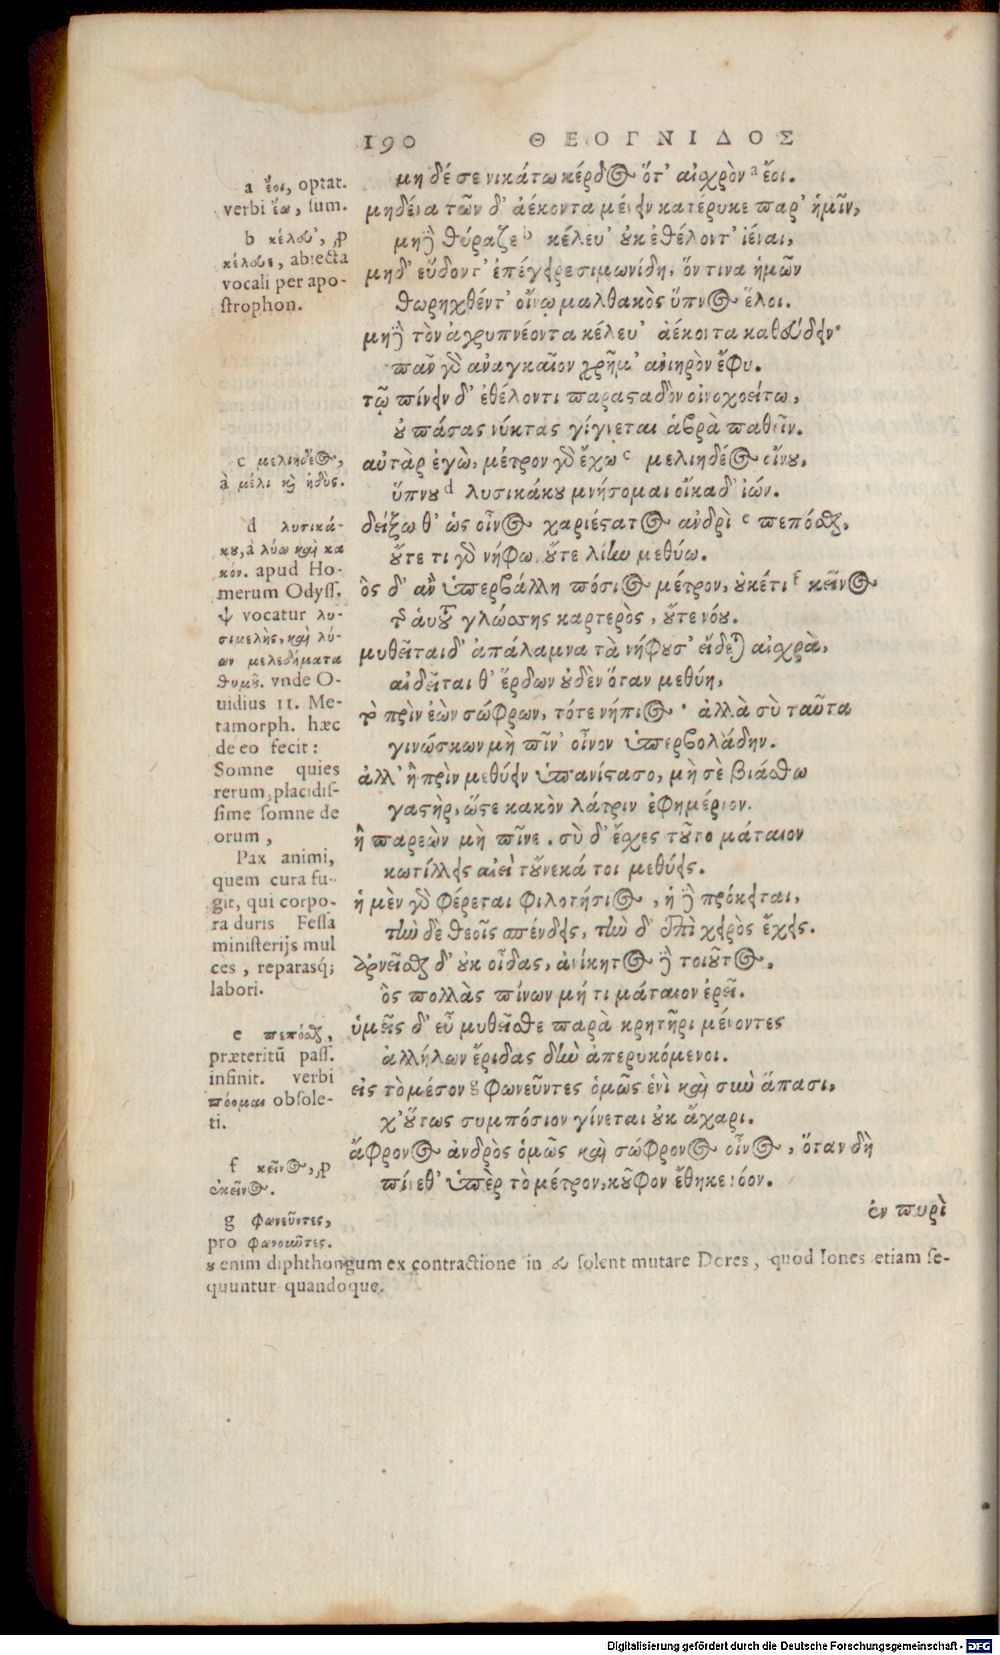 190 ΘΕΟΓΝΙΔΟΣ
μηδέ σε νικάτω κέρδος ὅτ' αἰσχρὸν a ἔοι.
μηδένα τῶν δ' ἀέκοντα μένειν κατέρυκε παρ' ἡμῖν,
μηδὲ θύραζε b κέλευ' οὐκ ἐθέλοντ' ἰέναι,
μηδ' εὕδοντ' ἐπέγειρε σιμωνίδη, ὅν τινα ἡμῶν
θωρηχθέντ' οἴνῳ μαλθακὸς ὕπνος ἕλοι.
μηδὲ τὸν ἀγρυπνέοντα κέλευ' ἀέκοντα καθεύδειν·
πᾶν γὰρ ἀναγκαῖον χρῆμ' ἀνιηρὸν ἔφυ.
τῷ πίνειν δ' ἐθέλοντι παρασταδὸν οἰνοχοείτω,
οὐ πάσας νύκτας γίγνεται ἁβρὰ παθεῖν.
αὐτὰρ ἐγὼ, μέτρον γὰρ ἔχω c μελιηδέος οἴνου,
ὕπνου d λυσικάκου μνήσομαι οἴκαδ' ἰών.
δείξω θ' ὡς οἶνος χαριέστατος ἀνδρὶ e πεπόσθαι,
οὔτε τι γὰρ νήφω, οὔτε λίην μεθύω.
ὃς δ' ἂν ὑπερβάλλη πόσιος μέτρον, οὐκέτι f κεῖνος
τῆς αὐτοῦ γλώσσης καρτερὸς, οὔτε νόου.
μυθεῖται δ' ἀπάλαμνα τὰ νήφουσ' εἴδεται αἰσχρὰ,
αἰδεῖται θ' ἕρδων οὐδὲν ὅταν μεθύη,
τὸ πρὶν ἐὼν σώφρων, τότε νήπιος· ἀλλὰ σὺ ταῦτα
γινώσκων μὴ πῖν' οἶνον ὑπερβολάδην.
ἀλλ' ἢ πρὶν μεθύειν ὑπανίστασο, μὴ σὲ βιάσθω
γαστὴρ, ὥστε κακὸν λάτριν ἐφημέριον.
ἢ παρεὼν μὴ πῖνε. σὺ δ' ἔγχες τοῦτο μάταιον
κωτίλλεις αἰεὶ τοὔνεκά τοι μεθύεις.
ἡ μὲν γὰρ φέρεται φιλοτήσιος, ἡ δὲ πρόκειται,
τὴν δὲ θεοῖς σπένδεις, τὴν δ' ἐπὶ χειρὸς ἔχεις.
ἀρνεῖσθαι δ' οὐκ οἶδας, ἀνίκητος δὲ τοιοῦτος,
ὃς πολλὰς πίνων μή τι μάταιον ἐρεῖ.
ὑμεῖς δ' εὖ μυθεῖσθε παρὰ κρητῆρι μένοντες
ἀλλήλων ἔριδας δὴν ἀπερυκόμενοι.
εἰς τὸ μέσον g φωνεῦντες ὁμῶς ἑνὶ καὶ σὺν ἅπασι,
χ' οὕτως συμπόσιον γίνεται οὐκ ἄχαρι.
ἄφρονος ἀνδρὸς ὁμῶς καὶ σώφρονος οἶνος, ὅταν δὴ
πίνεθ' ὑπὲρ τὸ μέτρον, κοῦφον ἔθηκε νόον.
ἐν πυρὶ
a ἔοι, optat.
verbi ἔω, sum.
b κέλευ', pro
κέλευε, abiecta
vocali per apo-
strophon.
c μελιηδέος,
à μέλι καὶ ἡδύς.
d λυσικά-
κου, à λύω καὶ κα
κόν. apud Ho-
merum Odyss.
ψ vocatur λυ-
σιμελὴς, καὶ λύ-
ων μελεδήματα
θυμοῦ. vnde O-
uidius 11. Me-
tamorph. hæc
de eo fecit:
Somne quies
rerum, placidis-
sime somne de
orum,
Pax animi,
quem cura fu-
git, qui corpo-
ra duris Fessa
ministerijs mul
ces, reparasq́;
labori.
e πεπόσθαι,
præteritū pass.
infinit. verbi
πόομαι obsole-
ti.
f κεῖνος, pro
ἐκεῖνος.
g φωνεῦντες,
pro φωνοῦντες.
ου enim diphthongum ex contractione in ευ solent mutare Dores, quod Iones etiam se-
quuntur quandoque.
Digitalisierung gefördert durch die Deutsche Forschungsgemeinschaft - DFG